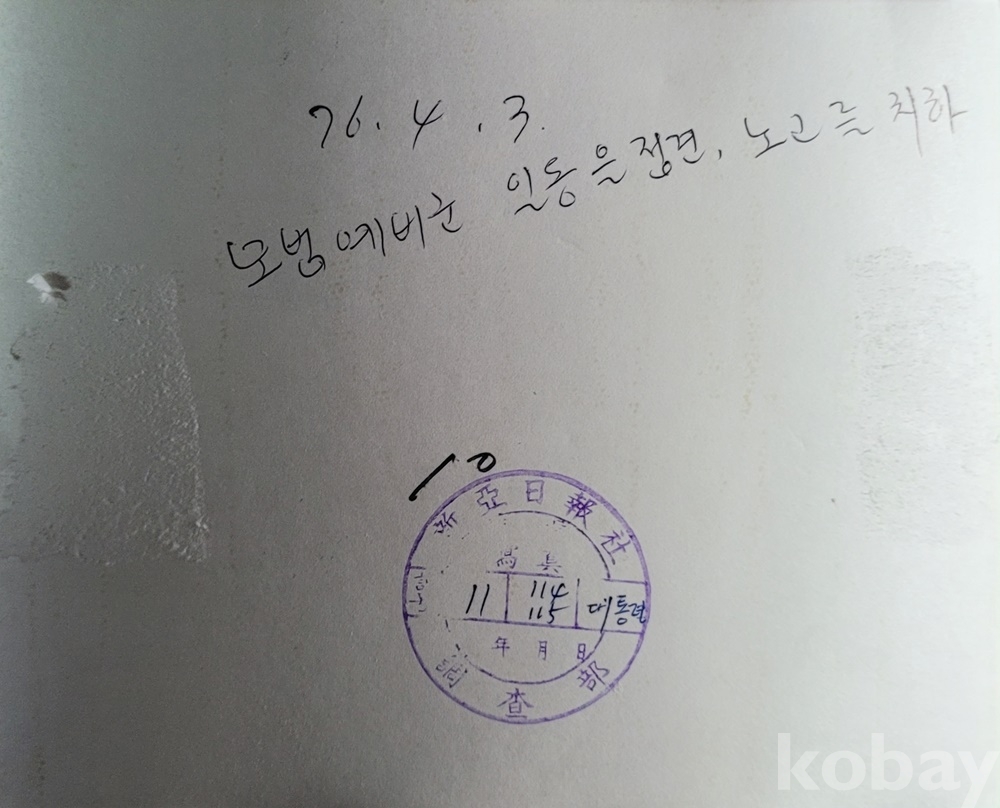 76. 4. 3.
모범예비군 일동을 접견, 노고를 치하
10
新亞日報社
寫眞
11 114 115 대통령
年 月 日
調査部
kobay